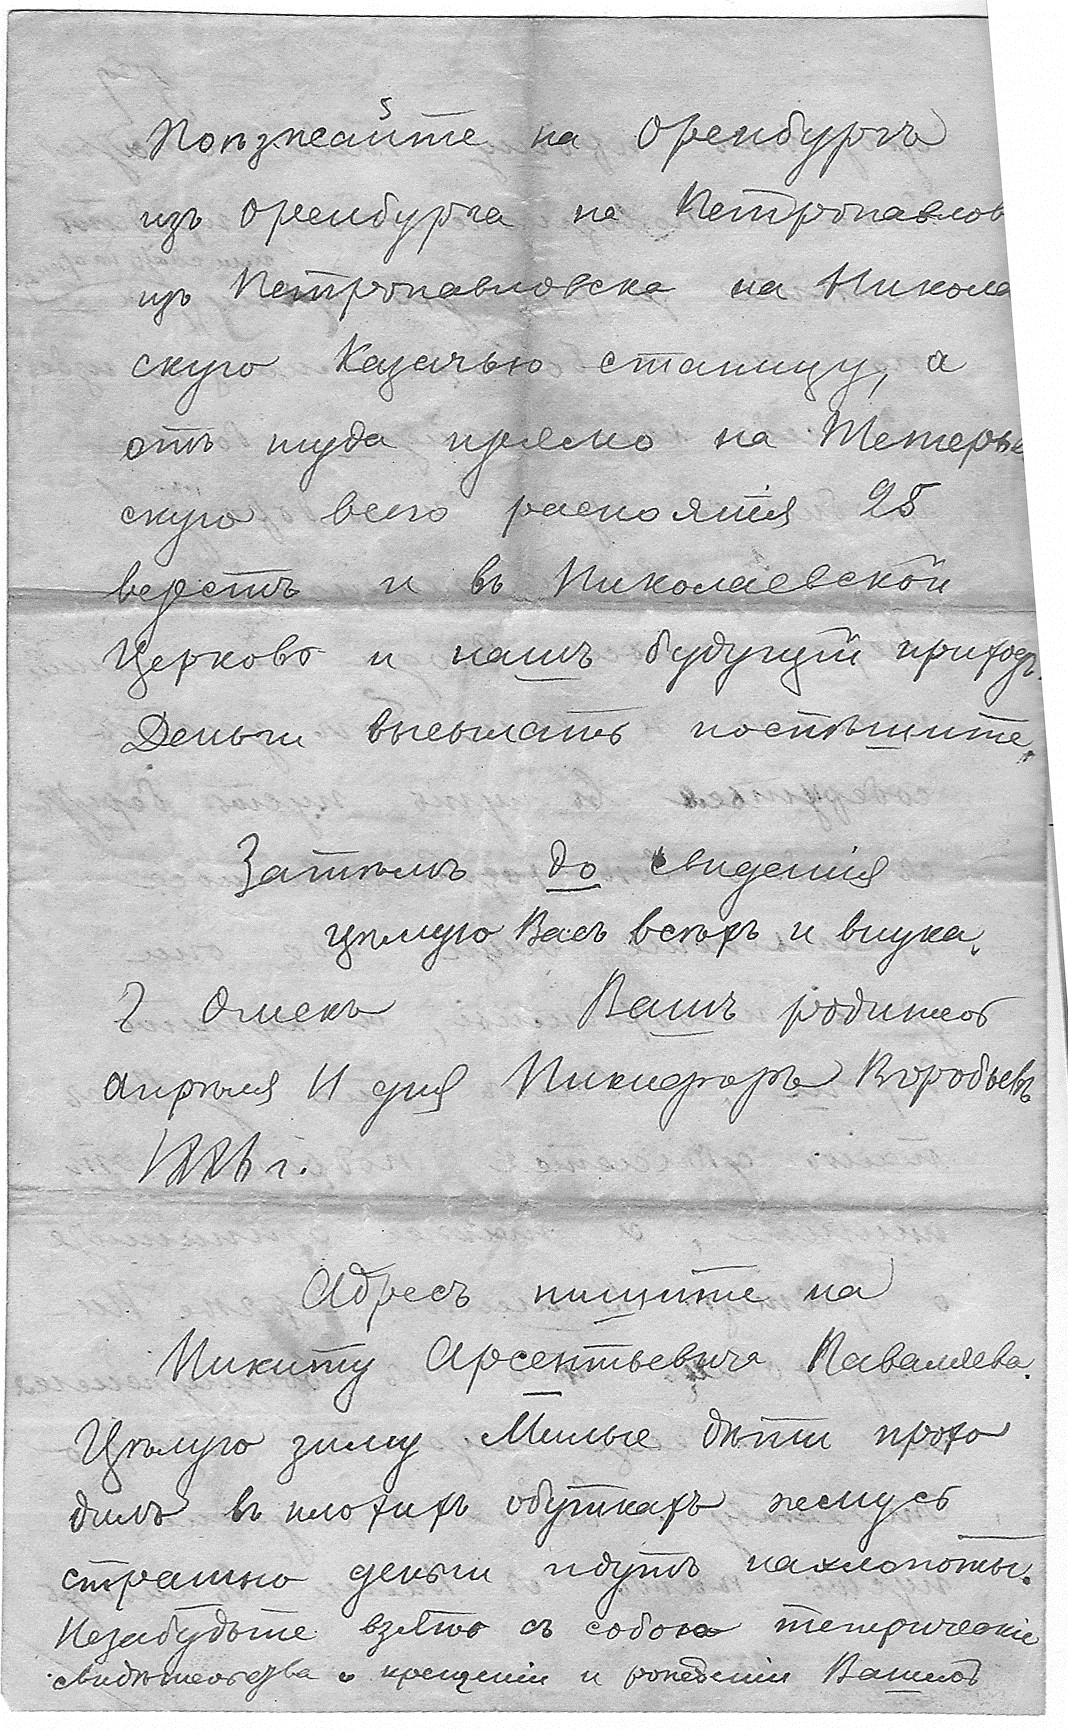 5
Поѣзжайте на Оренбургъ
изъ Оренбурга на Петропавлов
изъ Петропавловска на Никола
скую Казачью станицу, а
отъ туда прямо на Тетерье
скую всего растоятія 25
верстъ и въ Николаевской
Церковь и нашъ будущій приходъ.
Деньги высылать поспѣшите.
Затѣмъ до свиденія
цѣлую Васъ всѣхъ и внука.
Г Омскъ Вашъ родитель
апрѣля 11 дня Никифоръ Воробьевъ
г.
Адресъ пишите на
Никиту Арсентьевича Каваляева.
Цѣлую зиму Милые дѣти прохо
дилъ въ плохихъ обуткахъ жмусь
страшно деньги идутъ на хлопоты.
Незабудьте взять съ собою метрическіе
свидѣтельства о крещеніи и рожденіи Вашемъ